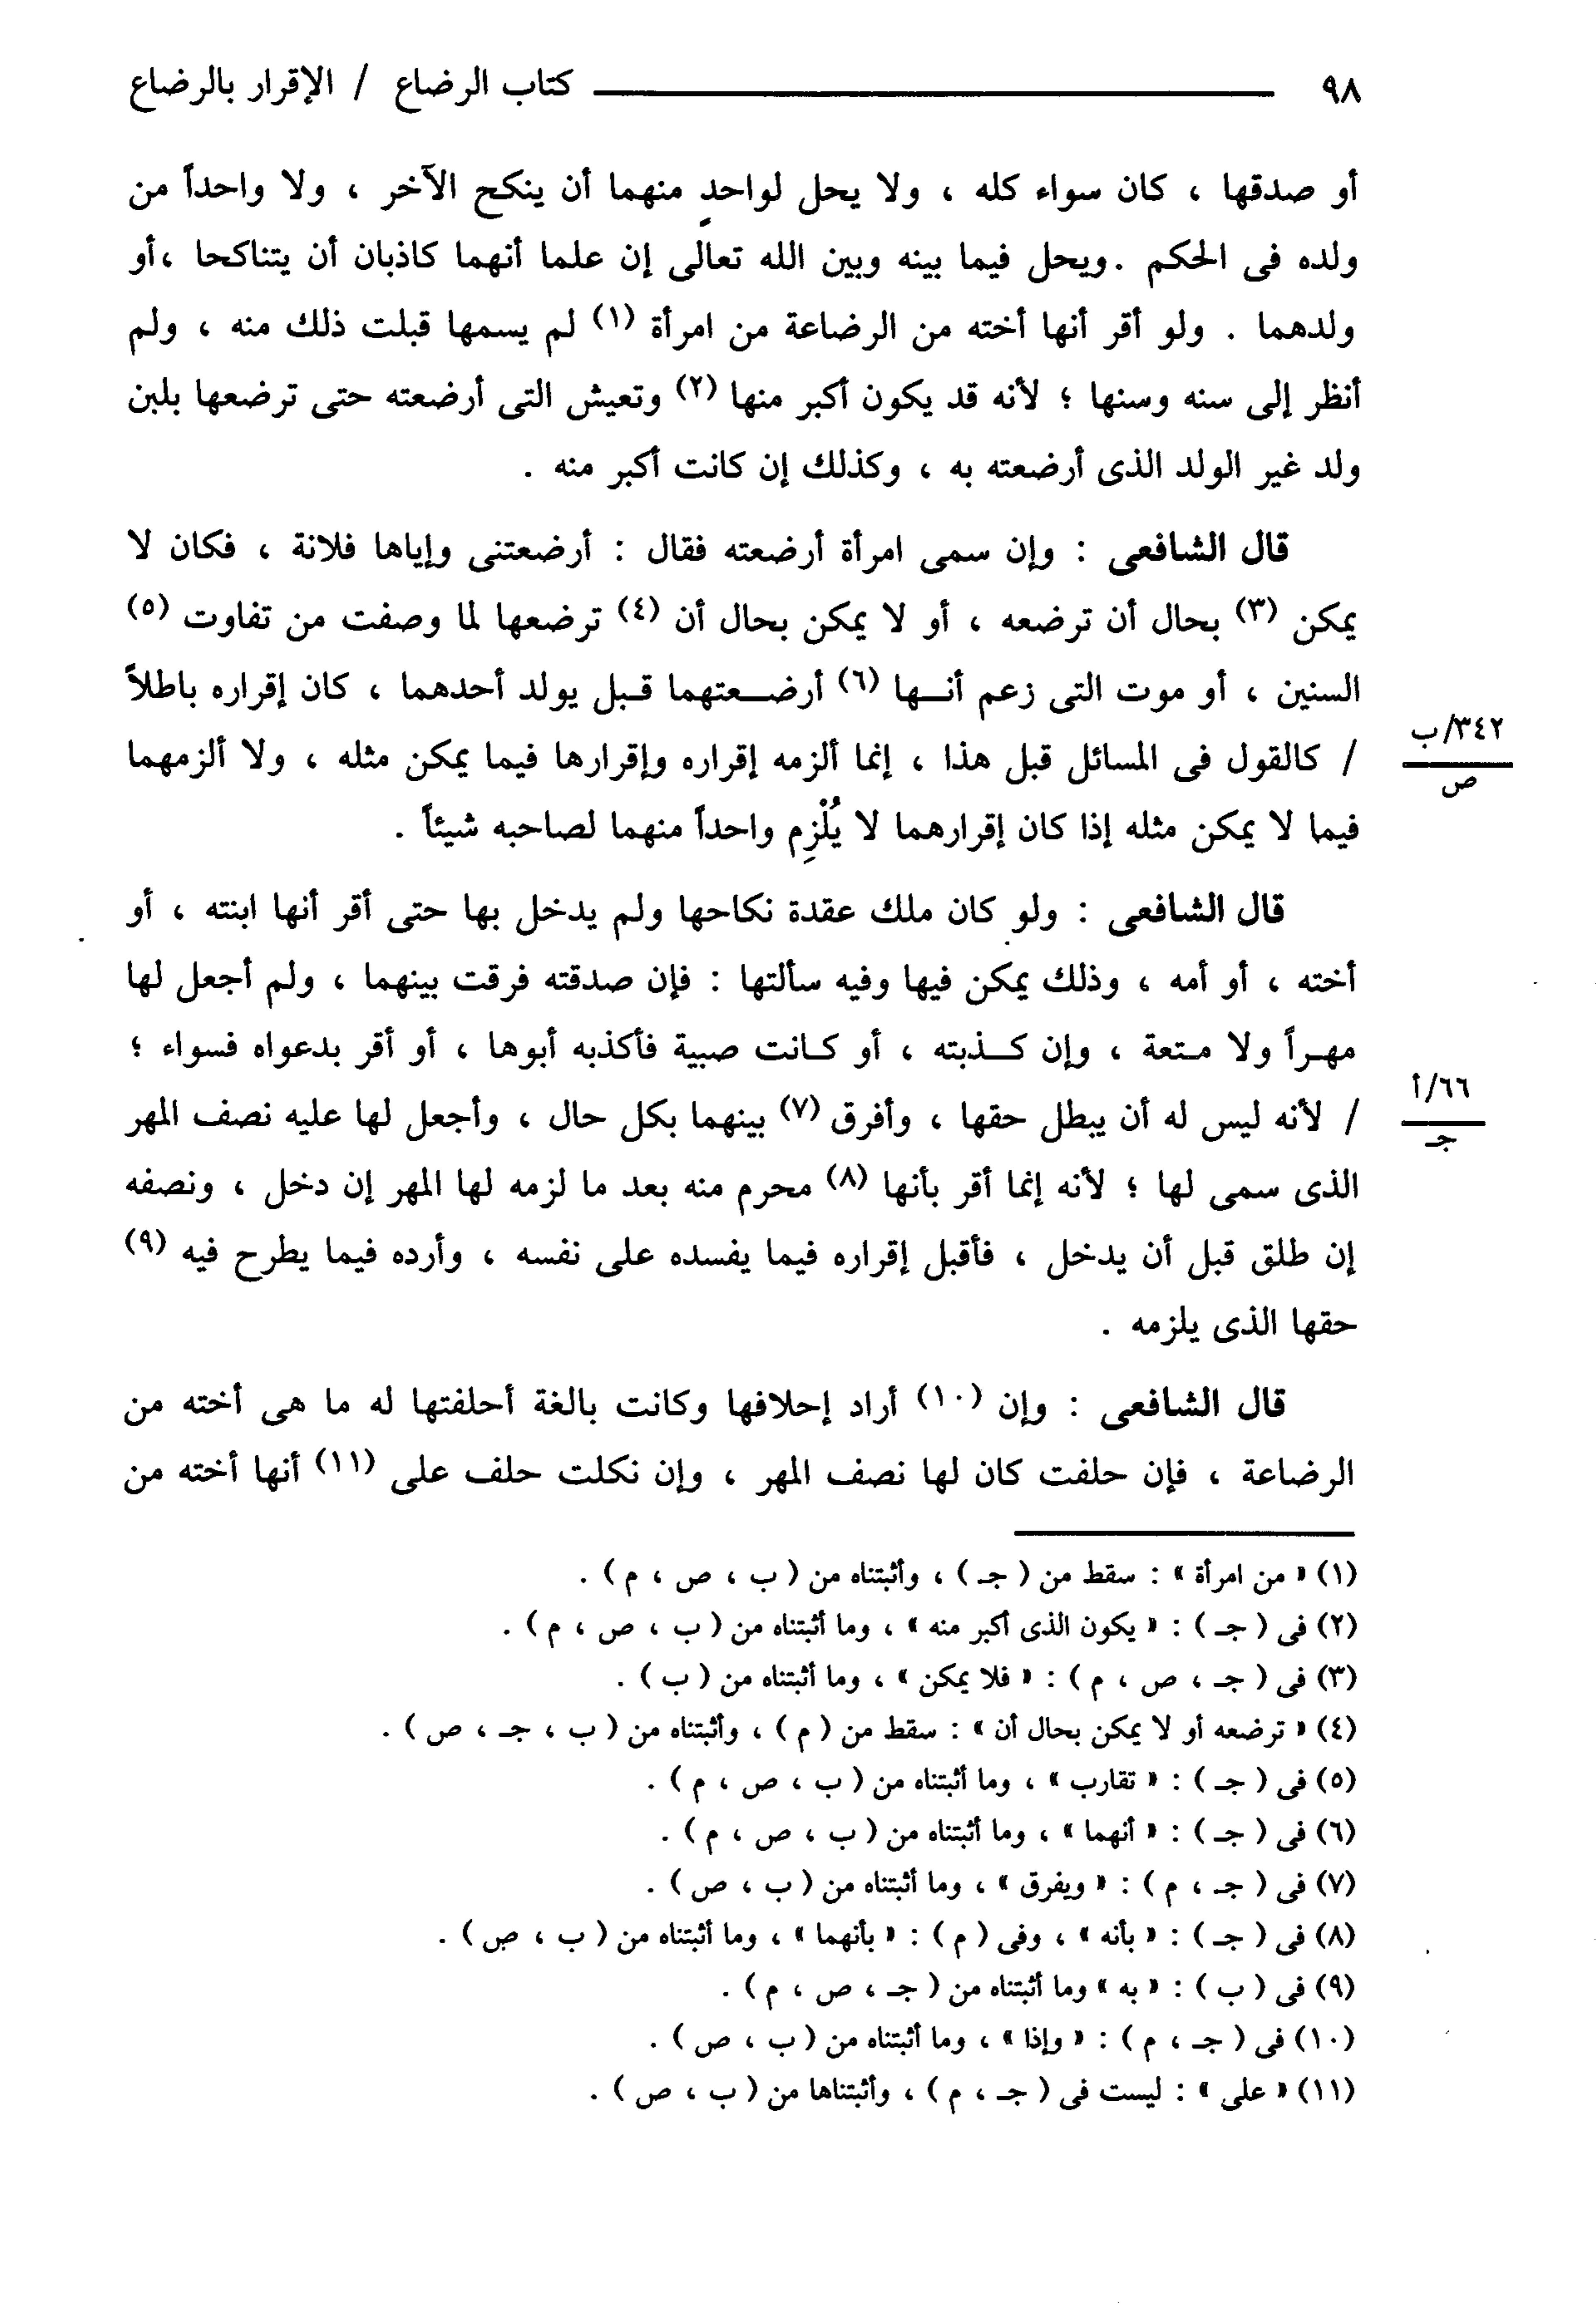 ٩٨ كتاب الرضاع / الإقرار بالرضاع
أو صدقها ، كان سواء كله ، ولا يحل لواحدٍ منهما أن ينكح الآخر ، ولا واحداً من
ولده فى الحكم . ويحل فيما بينه وبين الله تعالى إن علما أنهما كاذبان أن يتناكحا ،أو
ولدهما . ولو أقر أنها أخته من الرضاعة من امرأة (١) لم يسمها قبلت ذلك منه ، ولم
أنظر إلى سنه وسنها ؛ لأنه قد يكون أكبر منها (٢) وتعيش التى أرضعته حتى ترضعها بلبن
ولد غير الولد الذى أرضعته به ، وكذلك إن كانت أكبر منه .
قال الشافعى : وإن سمى امرأة أرضعته فقال : أرضعتنى وإياها فلانة ، فكان لا
يمكن (٣) بحال أن ترضعه ، أو لا يمكن بحال أن (٤) ترضعها لما وصفت من تفاوت (٥)
السنين ، أو موت التى زعم أنـها (٦) أرضـعتهما قـبل يولد أحدهما ، كان إقراره باطلاً
/ كالقول فى المسائل قبل هذا ، إنما ألزمه إقراره وإقرارها فيما يمكن مثله ، ولا ألزمهما
٣٤٢/ب
ص
فيما لا يمكن مثله إذا كان إقرارهما لا يُلْزِم واحداً منهما لصاحبه شيئاً .
قال الشافعى : ولو كان ملك عقدة نكاحها ولم يدخل بها حتى أقر أنها ابنته ، أو
أخته ، أو أمه ، وذلك يمكن فيها وفيه سألتها : فإن صدقته فرقت بينهما ، ولم أجعل لها
مهـراً ولا مـتعة ، وإن كـذبته ، أو كـانت صبية فأكذبه أبوها ، أو أقر بدعواه فسواء ؛
/ لأنه ليس له أن يبطل حقها ، وأفرق (٧) بينهما بكل حال ، وأجعل لها عليه نصف المهر
٦٦/أ
جـ
الذى سمى لها ؛ لأنه إنما أقر بأنها (٨) محرم منه بعد ما لزمه لها المهر إن دخل ، ونصفه
إن طلق قبل أن يدخل ، فأقبل إقراره فيما يفسده على نفسه ، وأرده فيما يطرح فيه (٩)
حقها الذى يلزمه .
قال الشافعى : وإن (١٠) أراد إحلافها وكانت بالغة أحلفتها له ما هى أخته من
الرضاعة ، فإن حلفت كان لها نصف المهر ، وإن نكلت حلف على (١١) أنها أخته من
(١) « من امرأة » : سقط من ( جـ ) ، وأثبتناه من ( ب ، ص ، م ) .
(٢) فى ( جـ ) : « يكون الذى أكبر منه » ، وما أثبتناه من ( ب ، ص ، م ) .
(٣) فى ( جـ ، ص ، م ) : « فلا يمكن » ، وما أثبتناه من ( ب ) .
(٤) « ترضعه أو لا يمكن بحال أن » : سقط من ( م ) ، وأثبتناه من ( ب ، جـ ، ص ) .
(٥) فى ( جـ ) : « تقارب » ، وما أثبتناه من ( ب ، ص ، م ) .
(٦) فى ( جـ ) : « أنهما » ، وما أثبتناه من ( ب ، ص ، م ) .
(٧) فى ( جـ ، م ) : « ويفرق » ، وما أثبتناه من ( ب ، ص ) .
(٨) فى ( جـ ) : « بأنه » ، وفى ( م ) : « بأنهما » ، وما أثبتناه من ( ب ، ص ) .
(٩) فى ( ب ) : « به » وما أثبتناه من ( جـ ، ص ، م ) .
(١٠) فى ( جـ ، م ) : « وإذا » ، وما أثبتناه من ( ب ، ص ) .
(١١) « على » : ليست فى ( جـ ، م ) ، وأثبتناها من ( ب ، ص ) .